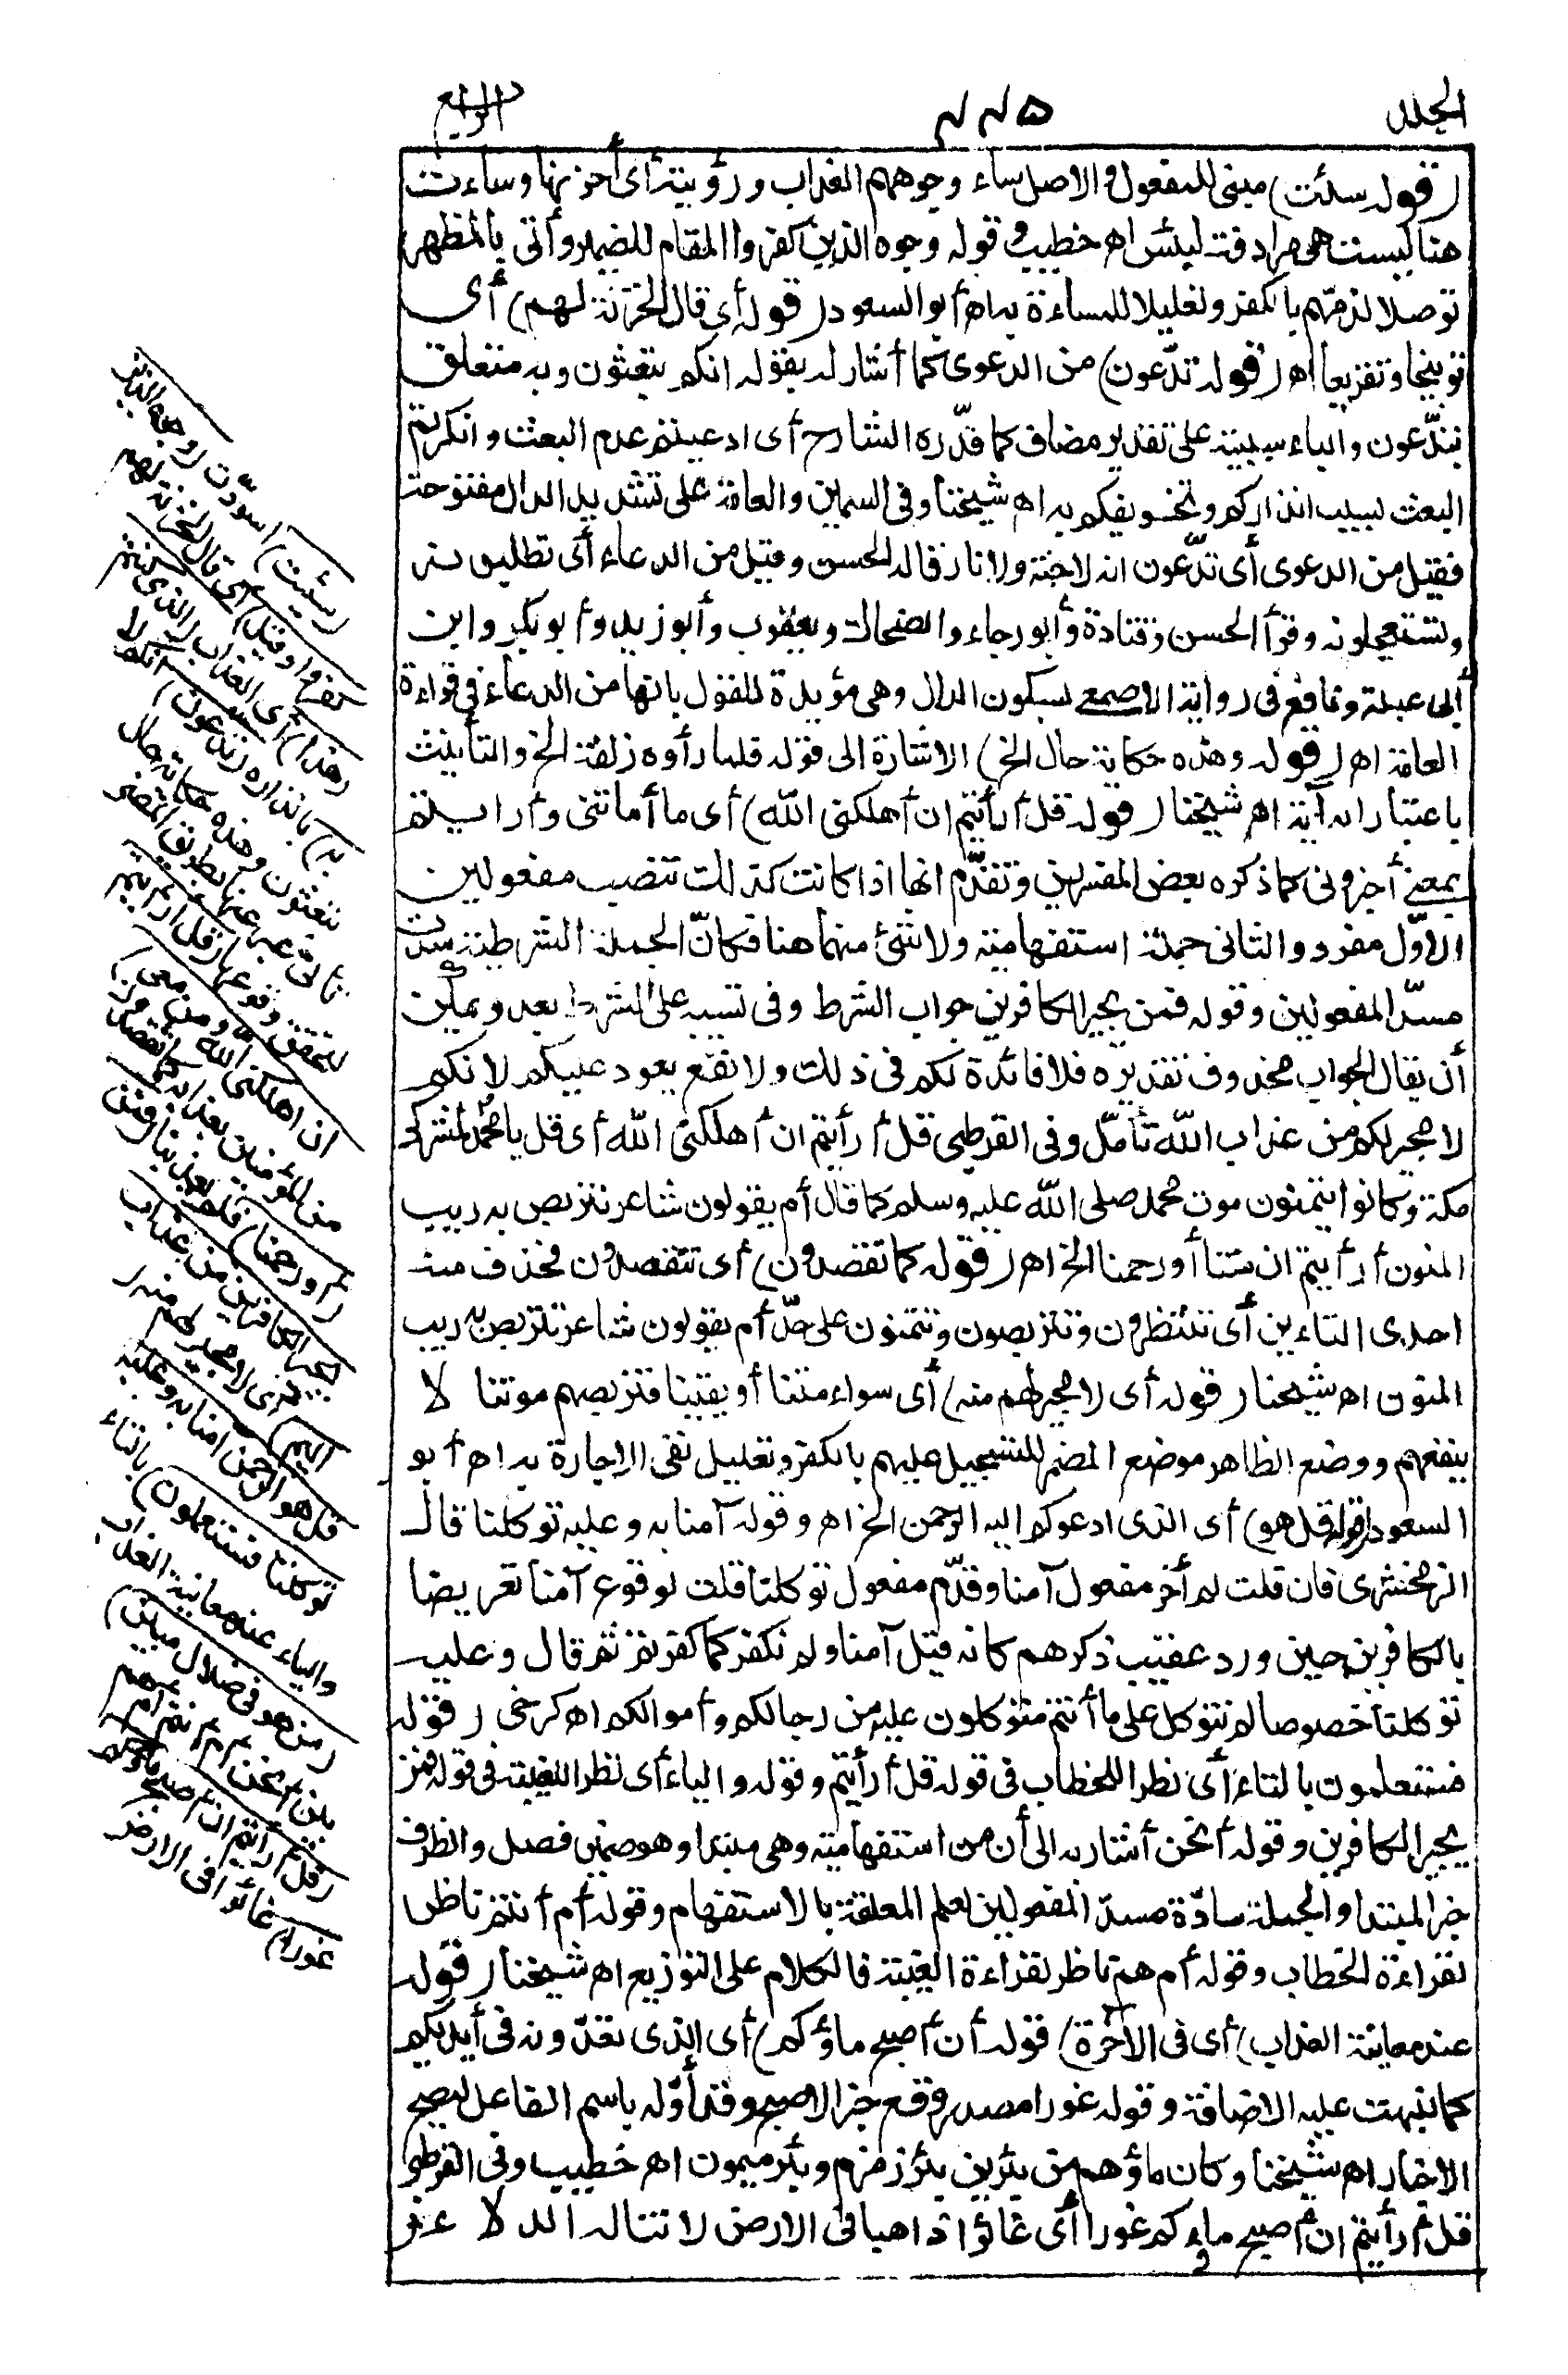 الجلد ٤٤٥ الرابع
(قوله سئت) مبنى للمفعول والاصل ساء وجوههم العذاب ورؤيته أى أحزنها وساءت
هنا ليست هى مرادفة لبئس اه خطيب وقوله وجوه الذين كفروا المقام للضمير وأتى بالمظهر
توصلا لذمهم بالكفر وتعليلا للمساءة به اه أبو السعود (قوله أى قال الخزنة لهم) أى
توبيخا وتقريعا اه (قوله تدّعون) من الدعوى كما أشار له بقوله انكم تبعثون وبه متعلق
بتدّعون والباء سببية على تقدير مضاف كما قدّره الشارح أى ادعيتم عدم البعث وانكرتم
البعث بسبب انذاركم وتخويفكم به اه شيخنا وفى السمين والعامة على تشديد الدال مفتوحة
فقيل من الدعوى أى تدّعون انه لا جنة ولا نار قاله الحسن وقيل من الدعاء أى تطلبونه
وتستعجلونه وقرأ الحسن وقتادة وأبو رجاء والضحاك ويعقوب وأبو زيد وأبو بكر وابن
أبى عبلة ونافع فى رواية الاصمعى بسكون الدال وهى مؤيدة للقول بانها من الدعاء فى قراءة
العامة اه (قوله وهذه حكاية حال الخ) الاشارة الى قوله فلما رأوه زلفة الخ والتأنيث
باعتبار انه آية اه شيخنا (قوله قل أرأيتم ان أهلكنى الله) أى ما أماتنى وأرأيتم
بمعنى أخبرونى كما ذكره بعض المفسرين وتقدّم انها اذا كانت كذلك تنصب مفعولين
الاوّل مفرد والثانى جملة استفهامية ولا شئ منهما هنا فكانّ الجملة الشرطية سدّت
مسدّ المفعولين وقوله فمن يجير الكافرين جواب الشرط وفى تسببه على الشرط بعد ويمكن
أن يقال الجواب محذوف تقديره فلا فائدة لكم فى ذلك ولا نفع يعود عليكم لانكم
لا مجير لكم من عذاب الله تأمّل وفى القرطبى قل أرأيتم ان أهلكنى الله أى قل يا محمد لمشركى
مكة وكانوا يتمنون موت محمد صلى الله عليه وسلم كما قال أم يقولون شاعر نتربص به ريب
المنون أرأيتم ان متنا أو رحمنا الخ اه (قوله كما تقصدون) أى تتقصدون فحذف منه
احدى التاءين أى تنتظرون وتتربصون وتتمنون على حدّ أم يقولون شاعر نتربص به ريب
المنون اه شيخنا (قوله أى لا مجير لهم منه) أى سواء متنا أو بقينا فتربصهم موتنا لا
ينفعهم ووضع الظاهر موضع المضمر للتسجيل عليهم بالكفر وتعليل نفى الاجارة به اه أبو
السعود (قوله قل هو) أى الذى ادعوكم اليه الرحمن الخ اه وقوله آمنا به وعليه توكلنا قال
الزمخشرى فان قلت لم أخر مفعول آمنا وقدّم مفعول توكلنا قلت لوقوع آمنا تعريضا
بالكافرين حين ورد عقيب ذكرهم كانه قيل آمنا ولم نكفر كما كفرتم ثم قال وعليه
توكلنا خصوصا لم نتوكل على ما أنتم متوكلون عليه من رجالكم وأموالكم اه كرخى (قوله
فستعلمون بالتاء) أى نظرا للخطاب فى قوله قل أرأيتم وقوله والياء أى نظرا للغيبة فى قوله فمن
يجير الكافرين وقوله أنحن أشار به الى أن من استفهامية وهى مبتدا وهو ضمير فصل والظرف
خبر المبتدا والجملة سادّة مسدّ المفعولين لعلم المعلقة بالاستفهام وقوله أم أنتم ناظر
لقراءة الخطاب وقوله أم هم ناظر لقراءة الغيبة فالكلام على التوزيع اه شيخنا (قوله
عند معاينة العذاب) أى فى الآخرة) قوله أن أصبح ماؤكم) أى الذى تعدّونه فى أيديكم
كما نبهت عليه الاضافة وقوله غورا مصدر وقع خبر الاصبح وقد أوّله باسم الفاعل ليصح
الاخبار اه شيخنا وكان ماؤهم من بئرين بئر زمزم وبئر ميمون اه خطيب وفى القرطبى
قل أرأيتم ان أصبح ماؤكم غورا أى غائرا ذاهبا فى الارض لا تناله الدلاء غير
(سئت) اسودّت (وجوه الذين
كفروا وقيل) أى قال الخزنة لهم
(هذا) أى العذاب (الذى كنتم
به) بانذاره (تدعون) انكم لا
تبعثون وهذه حكاية حال
تأتى عبر عنها بطريق المضى
لتحقق وقوعها (قل أرأيتم
ان أهلكنى الله ومن معى)
من المؤمنين بعذابه كما تقصدون
(أو رحمنا) فلم يعذبنا (فمن
يجير الكافرين من عذاب
اليم) أى لا مجير لهم منه (
قل هو الرحمن آمنا به وعليه
توكلنا فستعلمون) بالتاء
والياء عند معاينة العذاب
(من هو فى ضلال مبين)
بين أنحن أم أنتم أم هم
(قل أرأيتم ان أصبح ماؤكم
غورا) غائرا فى الارض